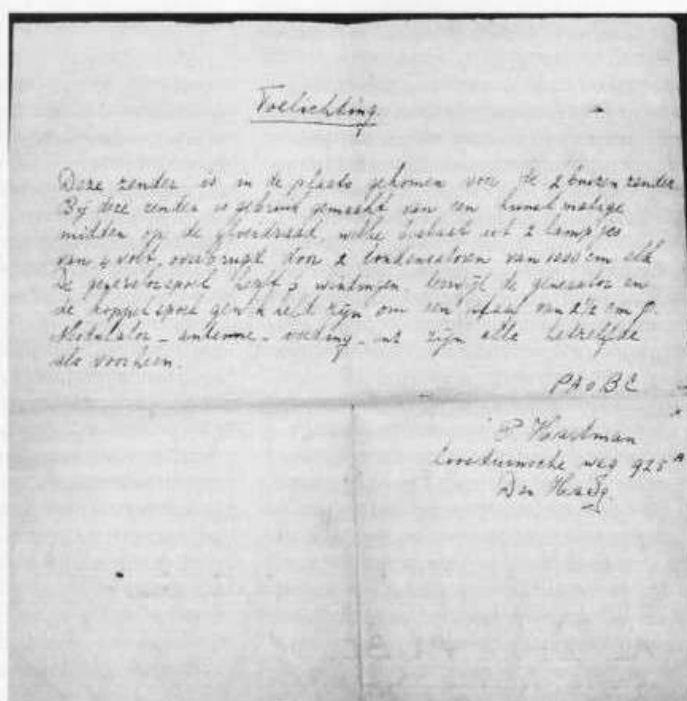 Toelichting.
Deze zender is in de plaats gekomen voor de 2 buizen zender.
Bij deze zender is gebruik gemaakt van een kunstmatige
midden op de gloeidraad, welke bestaat uit 2 lampjes
van 4 volt, overbrugd door 2 condensatoren van 1000 cm elk
De generatorspoel heeft 3 windingen, terwijl de generator en
de koppelspoel gewikkeld zijn om een van 2½ cm
Modulator - antenne - voeding - zijn alle hetzelfde
als voorheen.
PA0BE
P Hartman
Loosduinsche weg 925 A
Den Haag